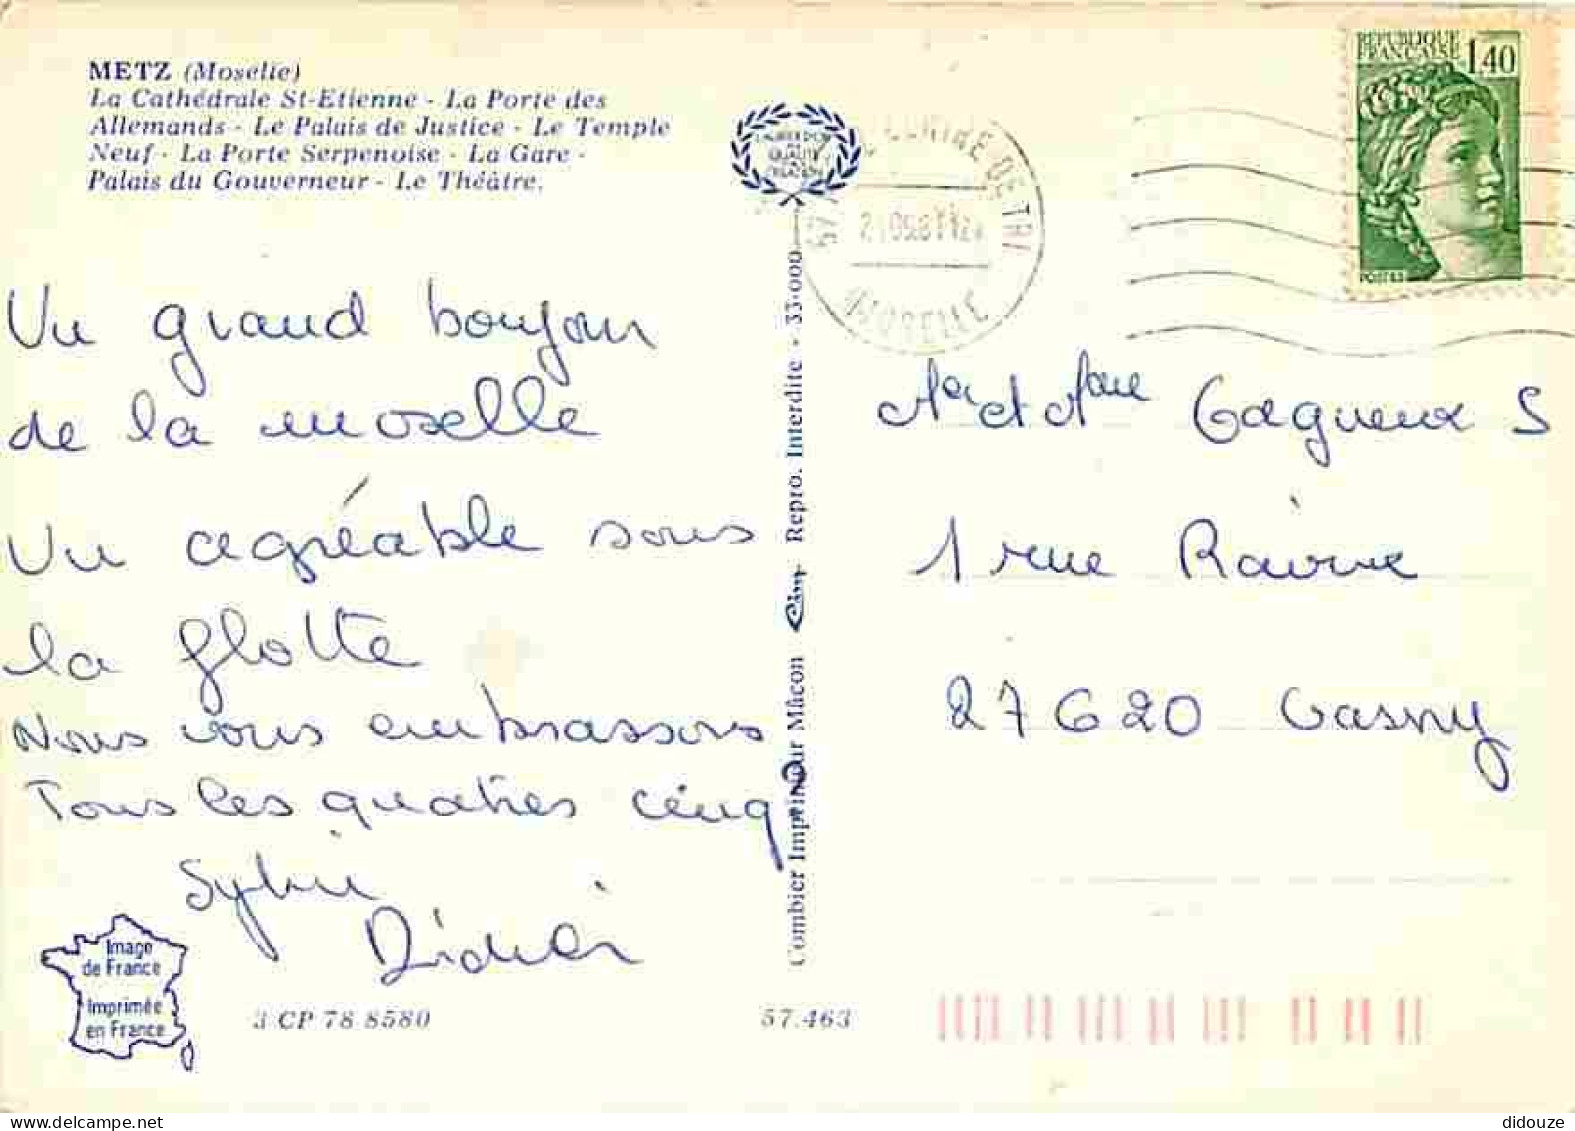 METZ (Moselle)
La Cathédrale St-Etienne - La Porte des
Allemands - Le Palais de Justice - Le Temple
Neuf - La Porte Serpenoise - La Gare -
Palais du Gouverneur - Le Théâtre.
Un grand boujour
de la moselle
Un agréable sous
la flotte
Nous vous embrassons
Tous les quatres cinq
Sylvie
Didier
Image
de France
Imprimée
en France
3 CP 78 8580
57.463
Combier Imprimeur Mâcon Cim Repro. Interdite - 33-000
QUALITÉ
CENTRE DE TRI
MOSELLE
REPUBLIQUE
FRANÇAISE 1,40
POSTES
Mr et Mme Gagneux S
1 rue Ravine
27620 Gasny
didouze